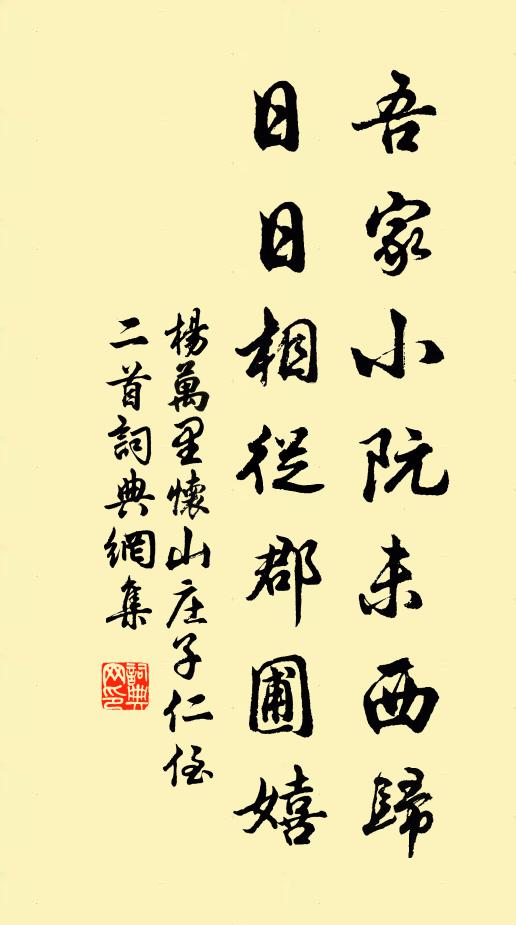 吾家小阮未西歸
日日相從郡圃嬉
楊萬里懷山庄子仁侄
二首詞典網集
詞典网印